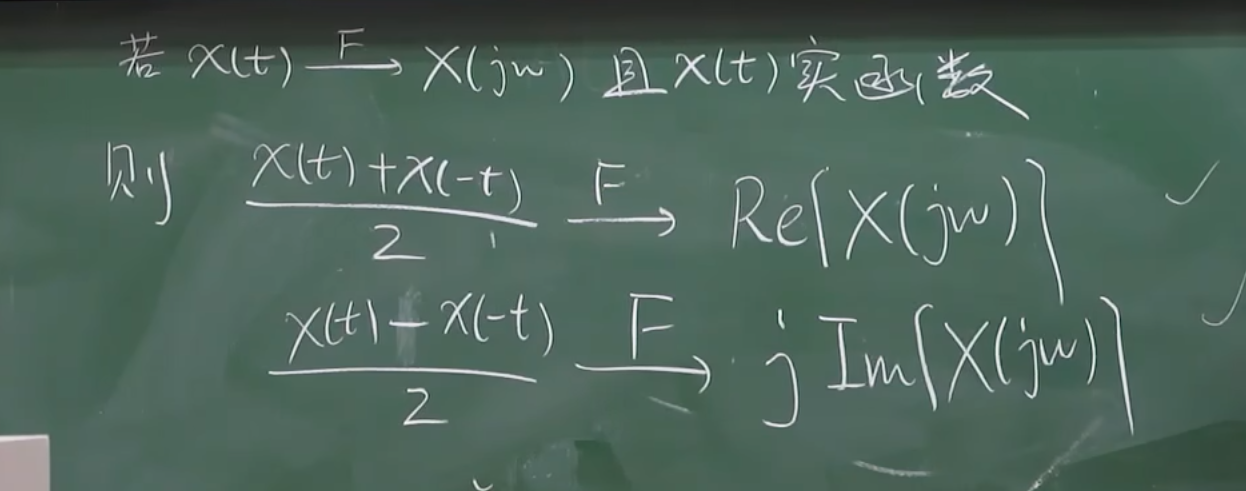 若 x(t) —F→ X(jw) 且 x(t) 实函数
则 (x(t)+x(-t))/2 —F→ Re{X(jw)}
(x(t)-x(-t))/2 —F→ j Im{X(jw)}